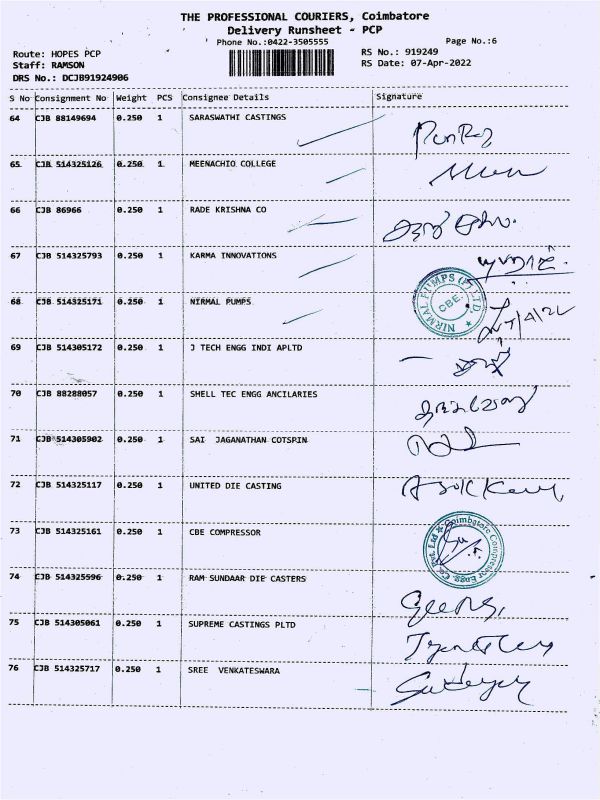 THE PROFESSIONAL COURIERS, Coimbatore
Delivery Runsheet - PCP
Phone No.:0422-3505555
Page No.:6
Route: HOPES PCP
RS No.: 919249
Staff: RAMSON
RS Date: 07-Apr-2022
DRS No.: DCJB91924906
S No Consignment No Weight PCS Consignee Details Signature
64 CJB 88149694 0.250 1 SARASWATHI CASTINGS
65 CJB 514325126 0.250 1 MEENACHIO COLLEGE
66 CJB 86966 0.250 1 RADE KRISHNA CO
67 CJB 514325793 0.250 1 KARMA INNOVATIONS
68 CJB 514325171 0.250 1 NIRMAL PUMPS
NIRMAL PUMPS (P) LTD.
CBE.
69 CJB 514305172 0.250 1 J TECH ENGG INDI APLTD
70 CJB 88288057 0.250 1 SHELL TEC ENGG ANCILARIES
71 CJB 514305902 0.250 1 SAI JAGANATHAN COTSPIN
72 CJB 514325117 0.250 1 UNITED DIE CASTING
73 CJB 514325161 0.250 1 CBE COMPRESSOR
Coimbatore Compressor Engg. Co. Pvt. Ltd
74 CJB 514325596 0.250 1 RAM SUNDAAR DIE CASTERS
75 CJB 514305061 0.250 1 SUPREME CASTINGS PLTD
76 CJB 514325717 0.250 1 SREE VENKATESWARA